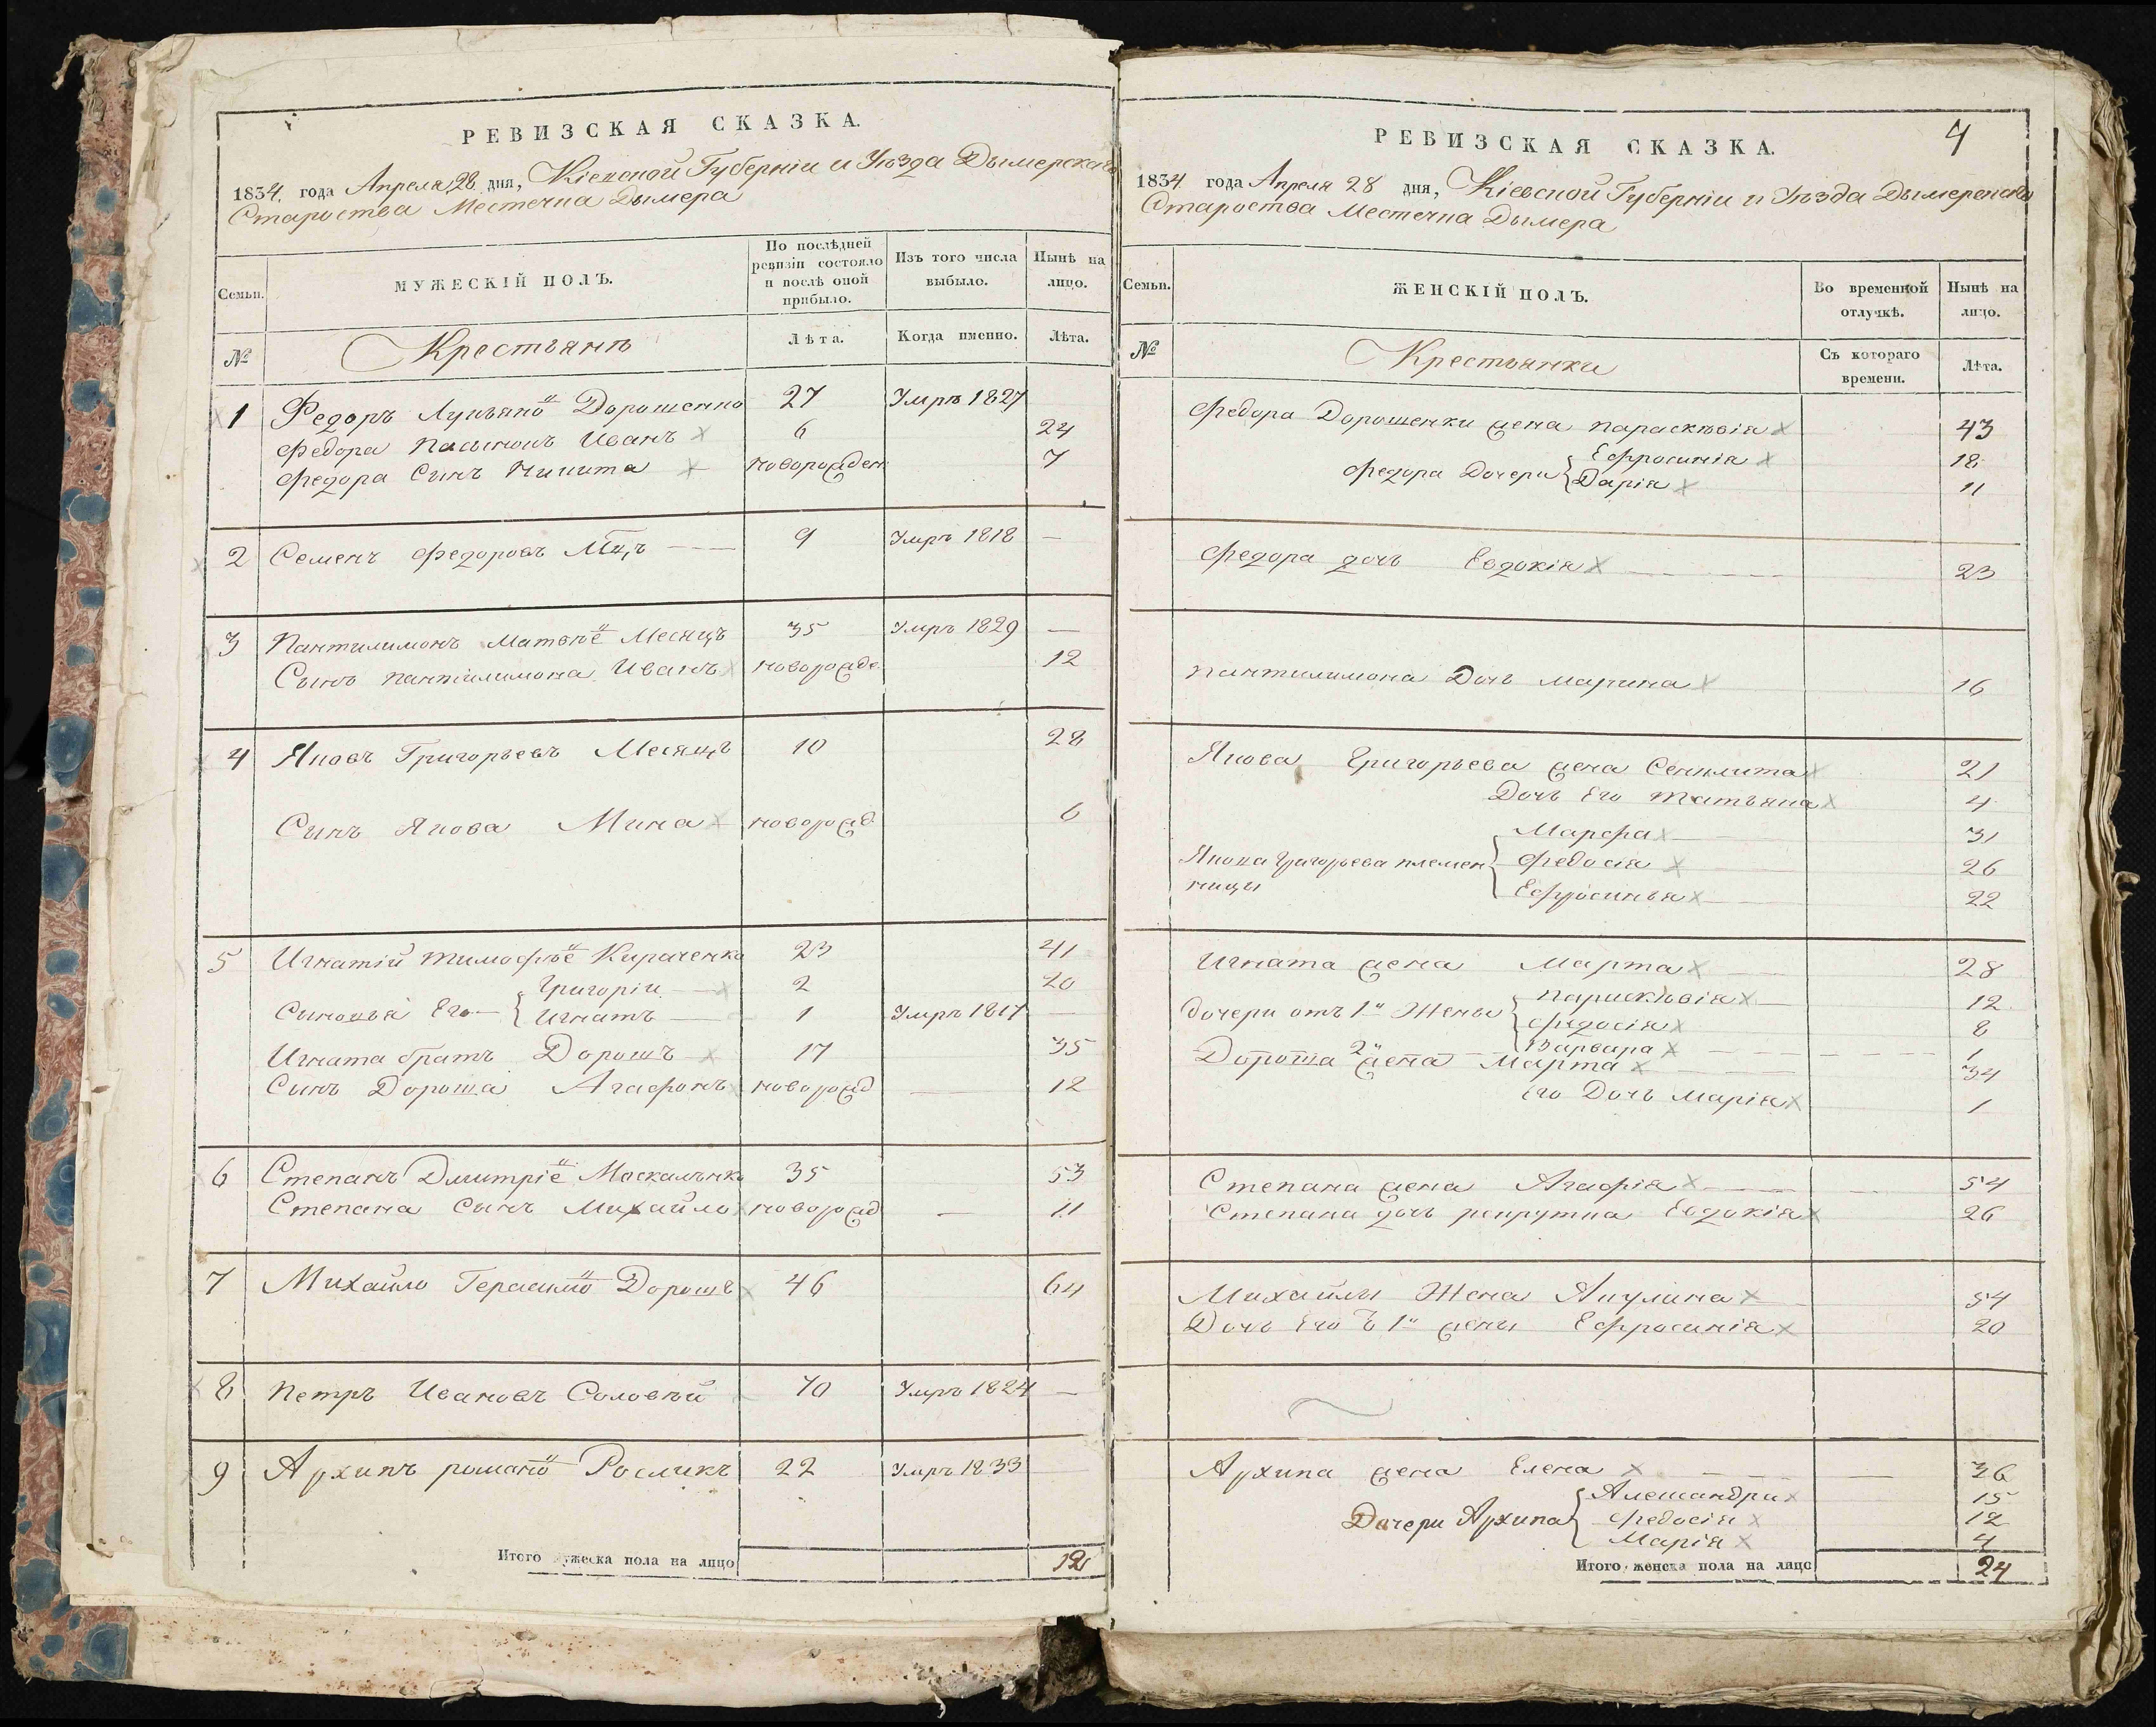 РЕВИЗСКАЯ СКАЗКА.
1834. года Апреля 28 дня, Кіевской Губерніи и Уѣзда Дымерского
Староства Местечка Дымера
Семьи. МУЖЕСКІЙ ПОЛЪ. По послѣдней ревизіи состояло и послѣ оной прибыло. Изъ того числа выбыло. Нынѣ на лицо.
№ Крестьянъ Лѣта. Когда именно. Лѣта.
1 Федоръ Лукьянов Дорошенко 27 Умръ 1827
Федора пасынокъ Иванъ 6 24
Федора Сынъ Никита новорожден 7
2 Семенъ Федоровъ Мцъ 9 Умръ 1818 —
3 Пантилимонъ Матвѣе Месяцъ 35 Умръ 1829 —
Сынъ пантилимона Иванъ новорожде 12
4 Яковъ Григорьевъ Месяцъ 10 28
Сынъ Якова Мина новорожд 6
5 Игнатій тимофѣе Кираченко 23 41
Григоріи 2 20
Сыновья Его Игнатъ 1 Умръ 1817 —
Игната братъ Дорошъ 17 35
Сынъ Дороша Агафонъ новорожд — 12
6 Степанъ Дмитріе Москаленко 35 53
Степана Сынъ Михайло новорожд — 11
7 Михайло Герасимо Дорошъ 46 64
8 Петръ Ивановъ Соловѣй 70 Умръ 1824 —
9 Архипъ романо Росликъ 22 Умръ 1833
Итого мужеска пола на лицо 12
РЕВИЗСКАЯ СКАЗКА. 4
1834 года Апреля 28 дня, Кіевской Губерніи и Уѣзда Дымерского
Староства Местечка Дымера
Семьи. ЖЕНСКІЙ ПОЛЪ. Во временной отлучкѣ. Нынѣ на лицо.
№ Крестьянки Съ котораго времени. Лѣта.
Федора Дорошенки жена параскѣвія 43
Ефросинія 18
Федора Дочери Дарія 11
Федора дочь Евдокія 23
пантилимона Дочь марина 16
Якова Григорьева жена Секлита 21
Дочь Его татьяна 4
Марфа 31
Якова Григорьева племен Федосія 26
ницы Ефросинья 22
Игната жена Марта 28
параскѣвія 12
дочери отъ 1й Жены федосія 8
2й Варвара 1
Дороша жена Марта 34
Его Дочь марія 1
Степана жена Агафія 54
Степана дочь рекрутка Евдокія 26
Михайлы Жена Акулина 54
Дочь Его ъ 1й жены Ефросинія 20
Архипа жена Елена — 36
Алешандри 15
Дочери Архипа федосія 12
Марія 4
Итого женска пола на лицо 24